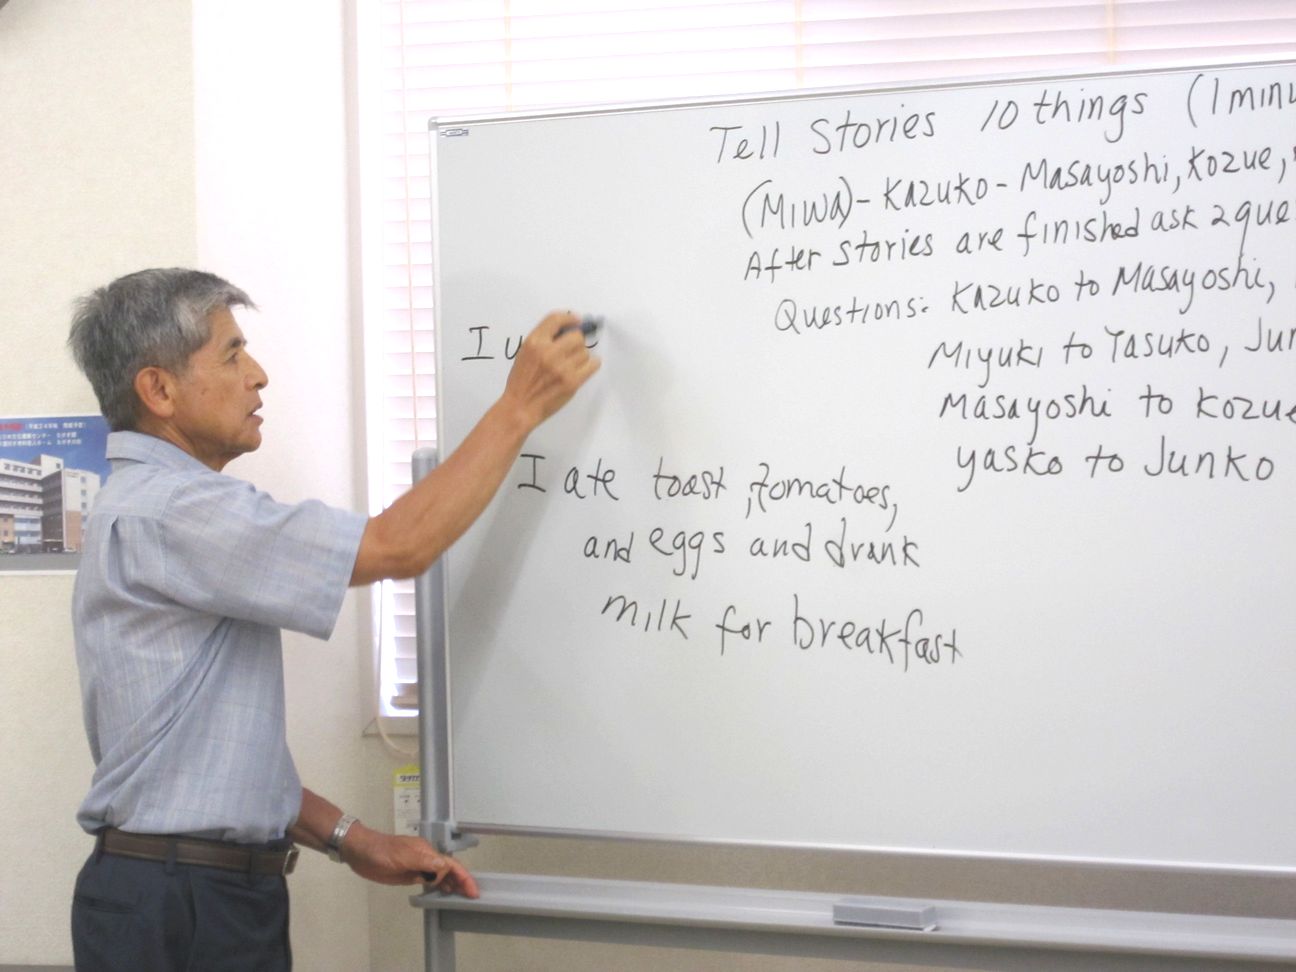 Tell Stories 10 things (1 minu
(Miwa) - Kazuko - Masayoshi, Kozue,
After stories are finished ask 2 que
Questions: Kazuko to Masayoshi,
Miyuki to Yasuko, Jun
Masayoshi to Kozue
Yasko to Junko
I
I ate toast, tomatoes,
and eggs and drank
milk for breakfast